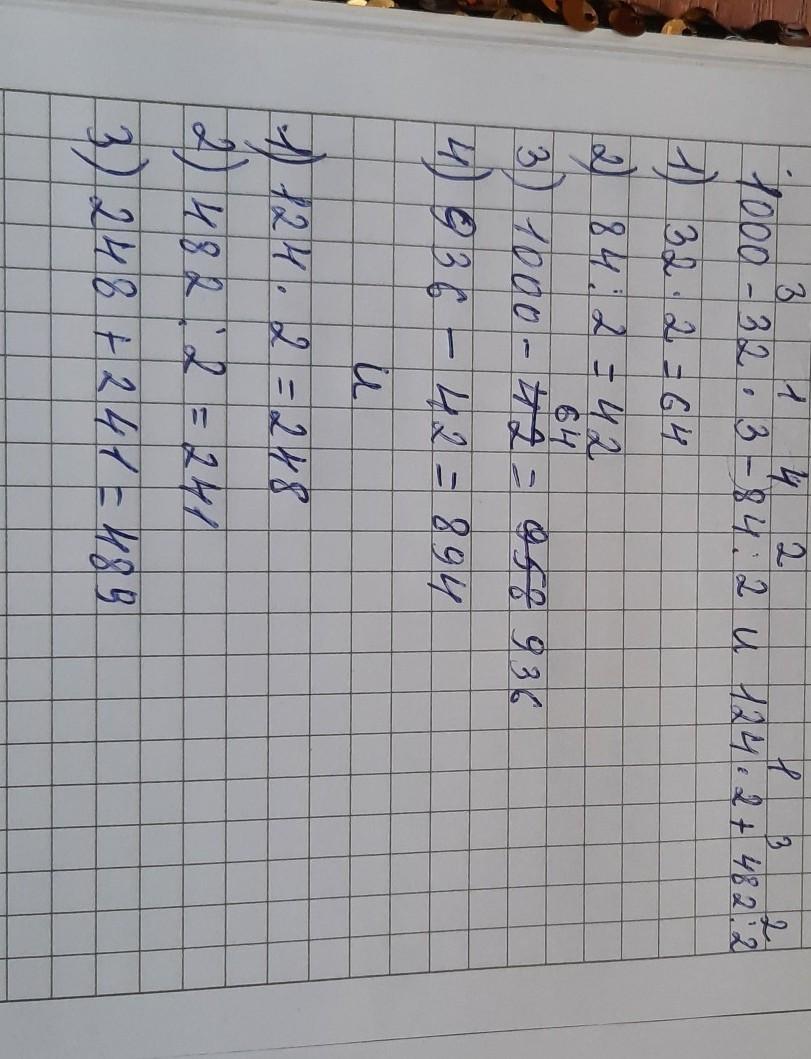 3 1 4 2 1 3 2
1000 - 32 · 3 - 84 : 2 и 124 · 2 + 482 : 2
1) 32 · 2 = 64
2) 84 : 2 = 42
64
3) 1000 - 42 = 958 936
4) 936 - 42 = 894
и
1) 124 · 2 = 248
2) 482 : 2 = 241
3) 248 + 241 = 489